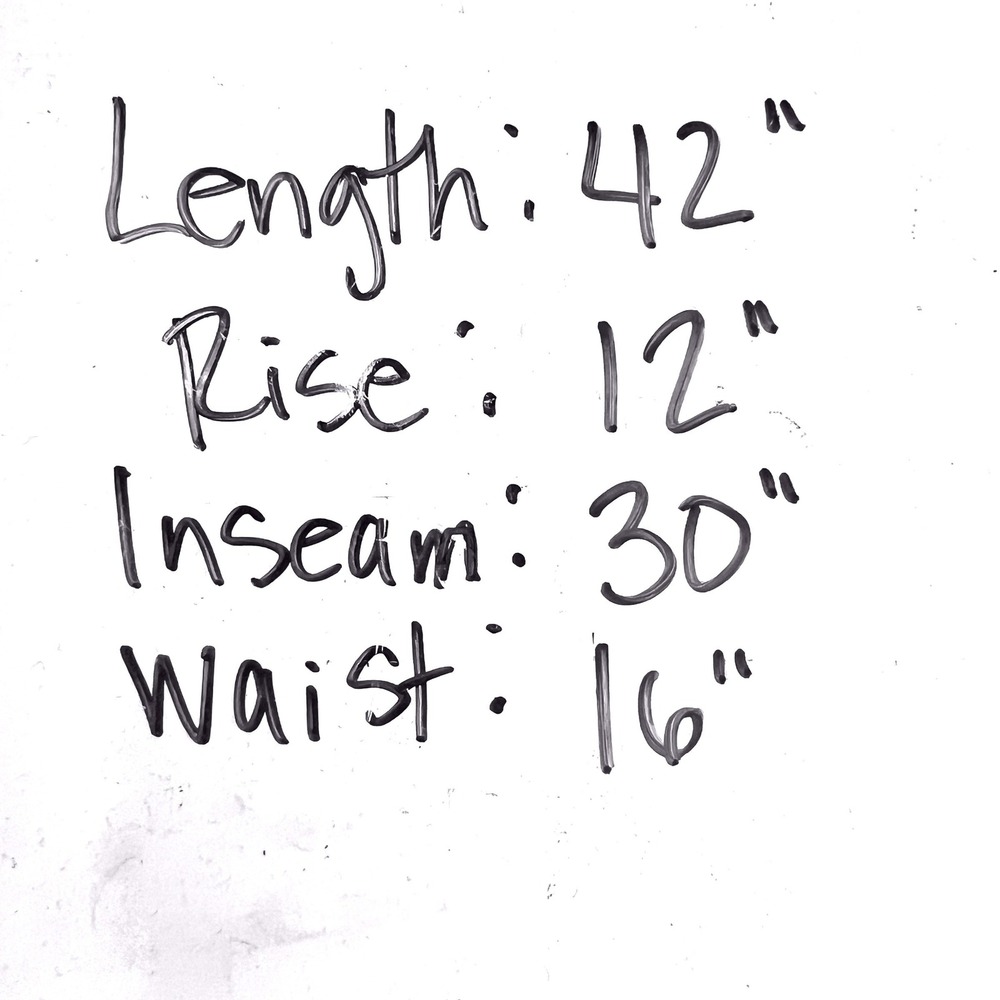 Length: 42"
Rise: 12"
Inseam: 30"
Waist: 16"